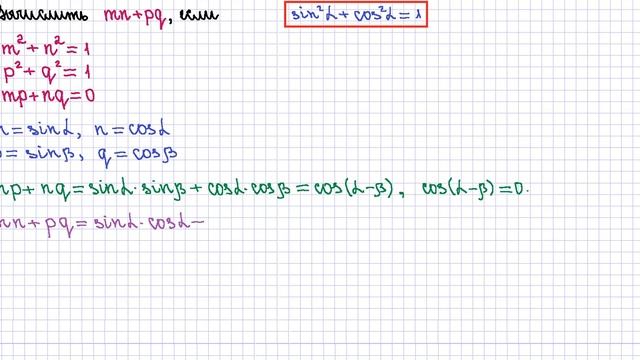 Вычислить mn+pq, если
sin²α + cos²α = 1
m² + n² = 1
p² + q² = 1
mp + nq = 0
m = sinα, n = cosα
p = sinβ, q = cosβ
mp + nq = sinα·sinβ + cosα·cosβ = cos(α-β), cos(α-β) = 0.
mn + pq = sinα·cosα